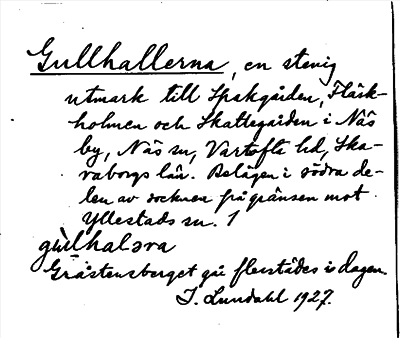 Gullhallerna, en stenig
utmark till Spakgården, Fläsk-
holmen och Skattegården i Näs
by, Näs sn, Vartofta hd, Ska-
raborgs län. Belägen i södra de-
len av socknen på gränsen mot
Yllestads sn. 1
gùlhaləra
Gråstensberget på flerstädes i dagen.
J. Lundahl 1927.